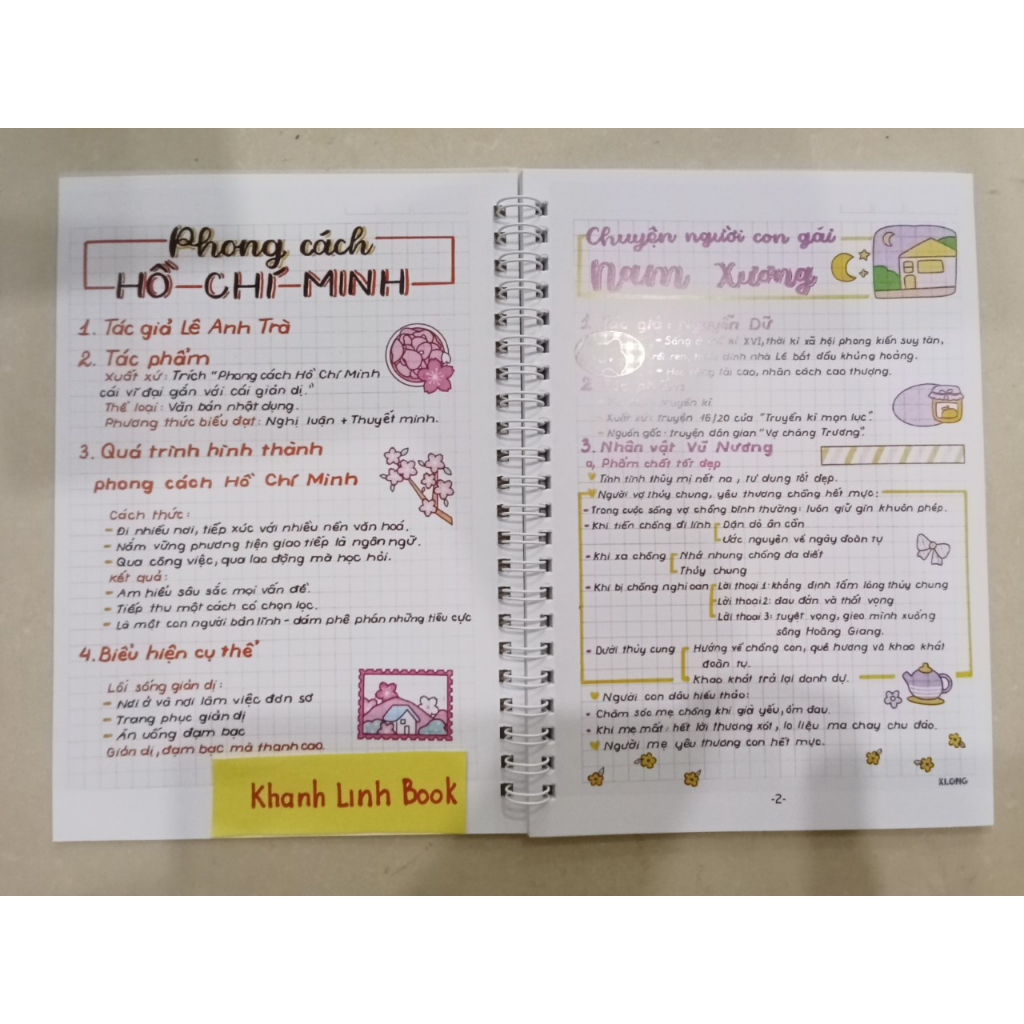 Phong cách
HỒ CHÍ MINH
1. Tác giả Lê Anh Trà
2. Tác phẩm
Xuất xứ: Trích "Phong cách Hồ Chí Minh
cái vĩ đại gắn với cái giản dị."
Thể loại: Văn bản nhật dụng.
Phương thức biểu đạt: Nghị luận + Thuyết minh.
3. Quá trình hình thành
phong cách Hồ Chí Minh
Cách thức:
- Đi nhiều nơi, tiếp xúc với nhiều nền văn hoá.
- Nắm vững phương tiện giao tiếp là ngôn ngữ.
- Qua công việc, qua lao động mà học hỏi.
Kết quả:
- Am hiểu sâu sắc mọi vấn đề.
- Tiếp thu một cách có chọn lọc.
- Là một con người bản lĩnh - dám phê phán những tiêu cực
4. Biểu hiện cụ thể
Lối sống giản dị:
- Nơi ở và nơi làm việc đơn sơ
- Trang phục giản dị
- Ăn uống đạm bạc
Giản dị, đạm bạc mà thanh cao.
Khanh Linh Book
Chuyện người con gái
Nam Xương
1. Tác giả: Nguyễn Dữ
- Sống ở thế kỉ XVI, thời kì xã hội phong kiến suy tàn,
rối ren, triều đình nhà Lê bắt đầu khủng hoảng.
tài cao, nhân cách cao thượng.
2. Tác phẩm
truyền kì
- Xuất xứ: truyện 16/20 của "Truyền kì mạn lục".
- Nguồn gốc: truyện dân gian "Vợ chàng Trương".
3. Nhân vật Vũ Nương
a, Phẩm chất tốt đẹp
Tính tình thùy mị nết na, tư dung tốt đẹp.
Người vợ thủy chung, yêu thương chồng hết mực:
- Trong cuộc sống vợ chồng bình thường: luôn giữ gìn khuôn phép.
- Khi tiễn chồng đi lính Dặn dò ân cần
Ước nguyện về ngày đoàn tụ
- Khi xa chồng Nhớ nhung chồng da diết
Thủy chung
- Khi bị chồng nghi oan Lời thoại 1: khẳng định tấm lòng thủy chung
Lời thoại 2: đau đớn và thất vọng
Lời thoại 3: tuyệt vọng, gieo mình xuống
sông Hoàng Giang.
- Dưới thủy cung Hướng về chồng con, quê hương và khao khát
đoàn tụ.
Khao khát trả lại danh dự.
Người con dâu hiếu thảo:
- Chăm sóc mẹ chồng khi già yếu, ốm đau.
- Khi mẹ mất: hết lời thương xót, lo liệu ma chay chu đáo.
Người mẹ yêu thương con hết mực.
XLONG
-2-